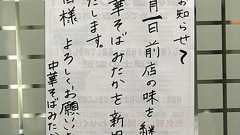 お知らせ
月一日前店の味を継
華そばみたかを新規
たします。
皆様 よろしくお願いい
中華そばみた